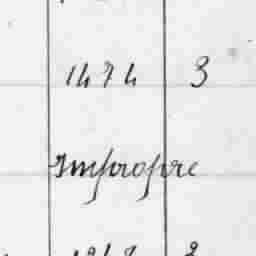 1474 3
Impropre